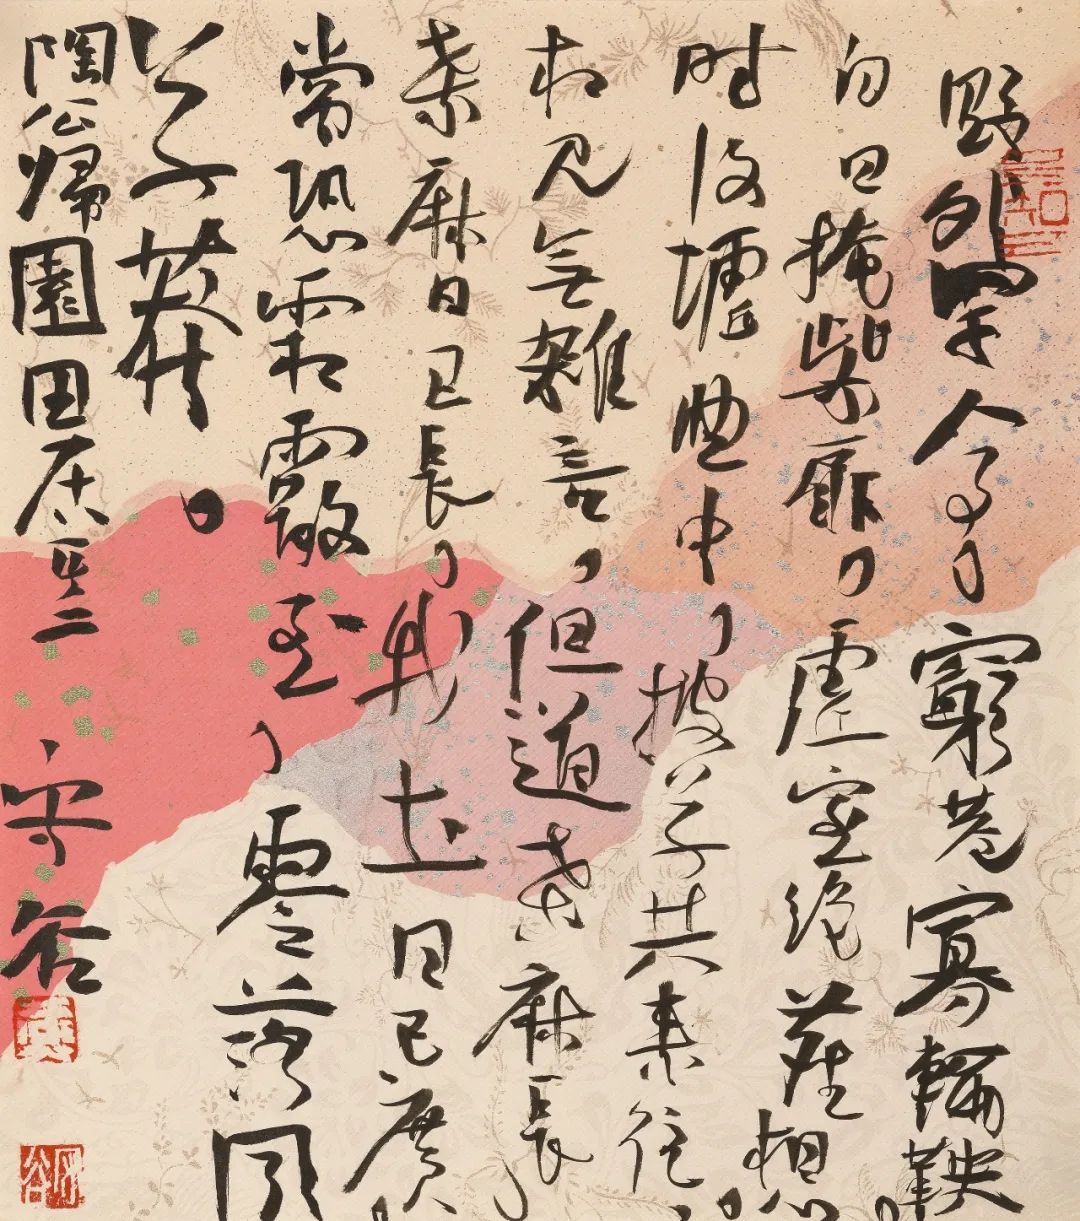 野外罕人事，窮巷寡輪鞅，
白日掩柴扉，虛室絕塵想，
時復墟曲中，披草共來往，
相見無雜言，但道桑麻長，
桑麻日已長，我土日已廣，
常恐霜霰至，零落同
草莽。
陶公歸園田居其二 守谷